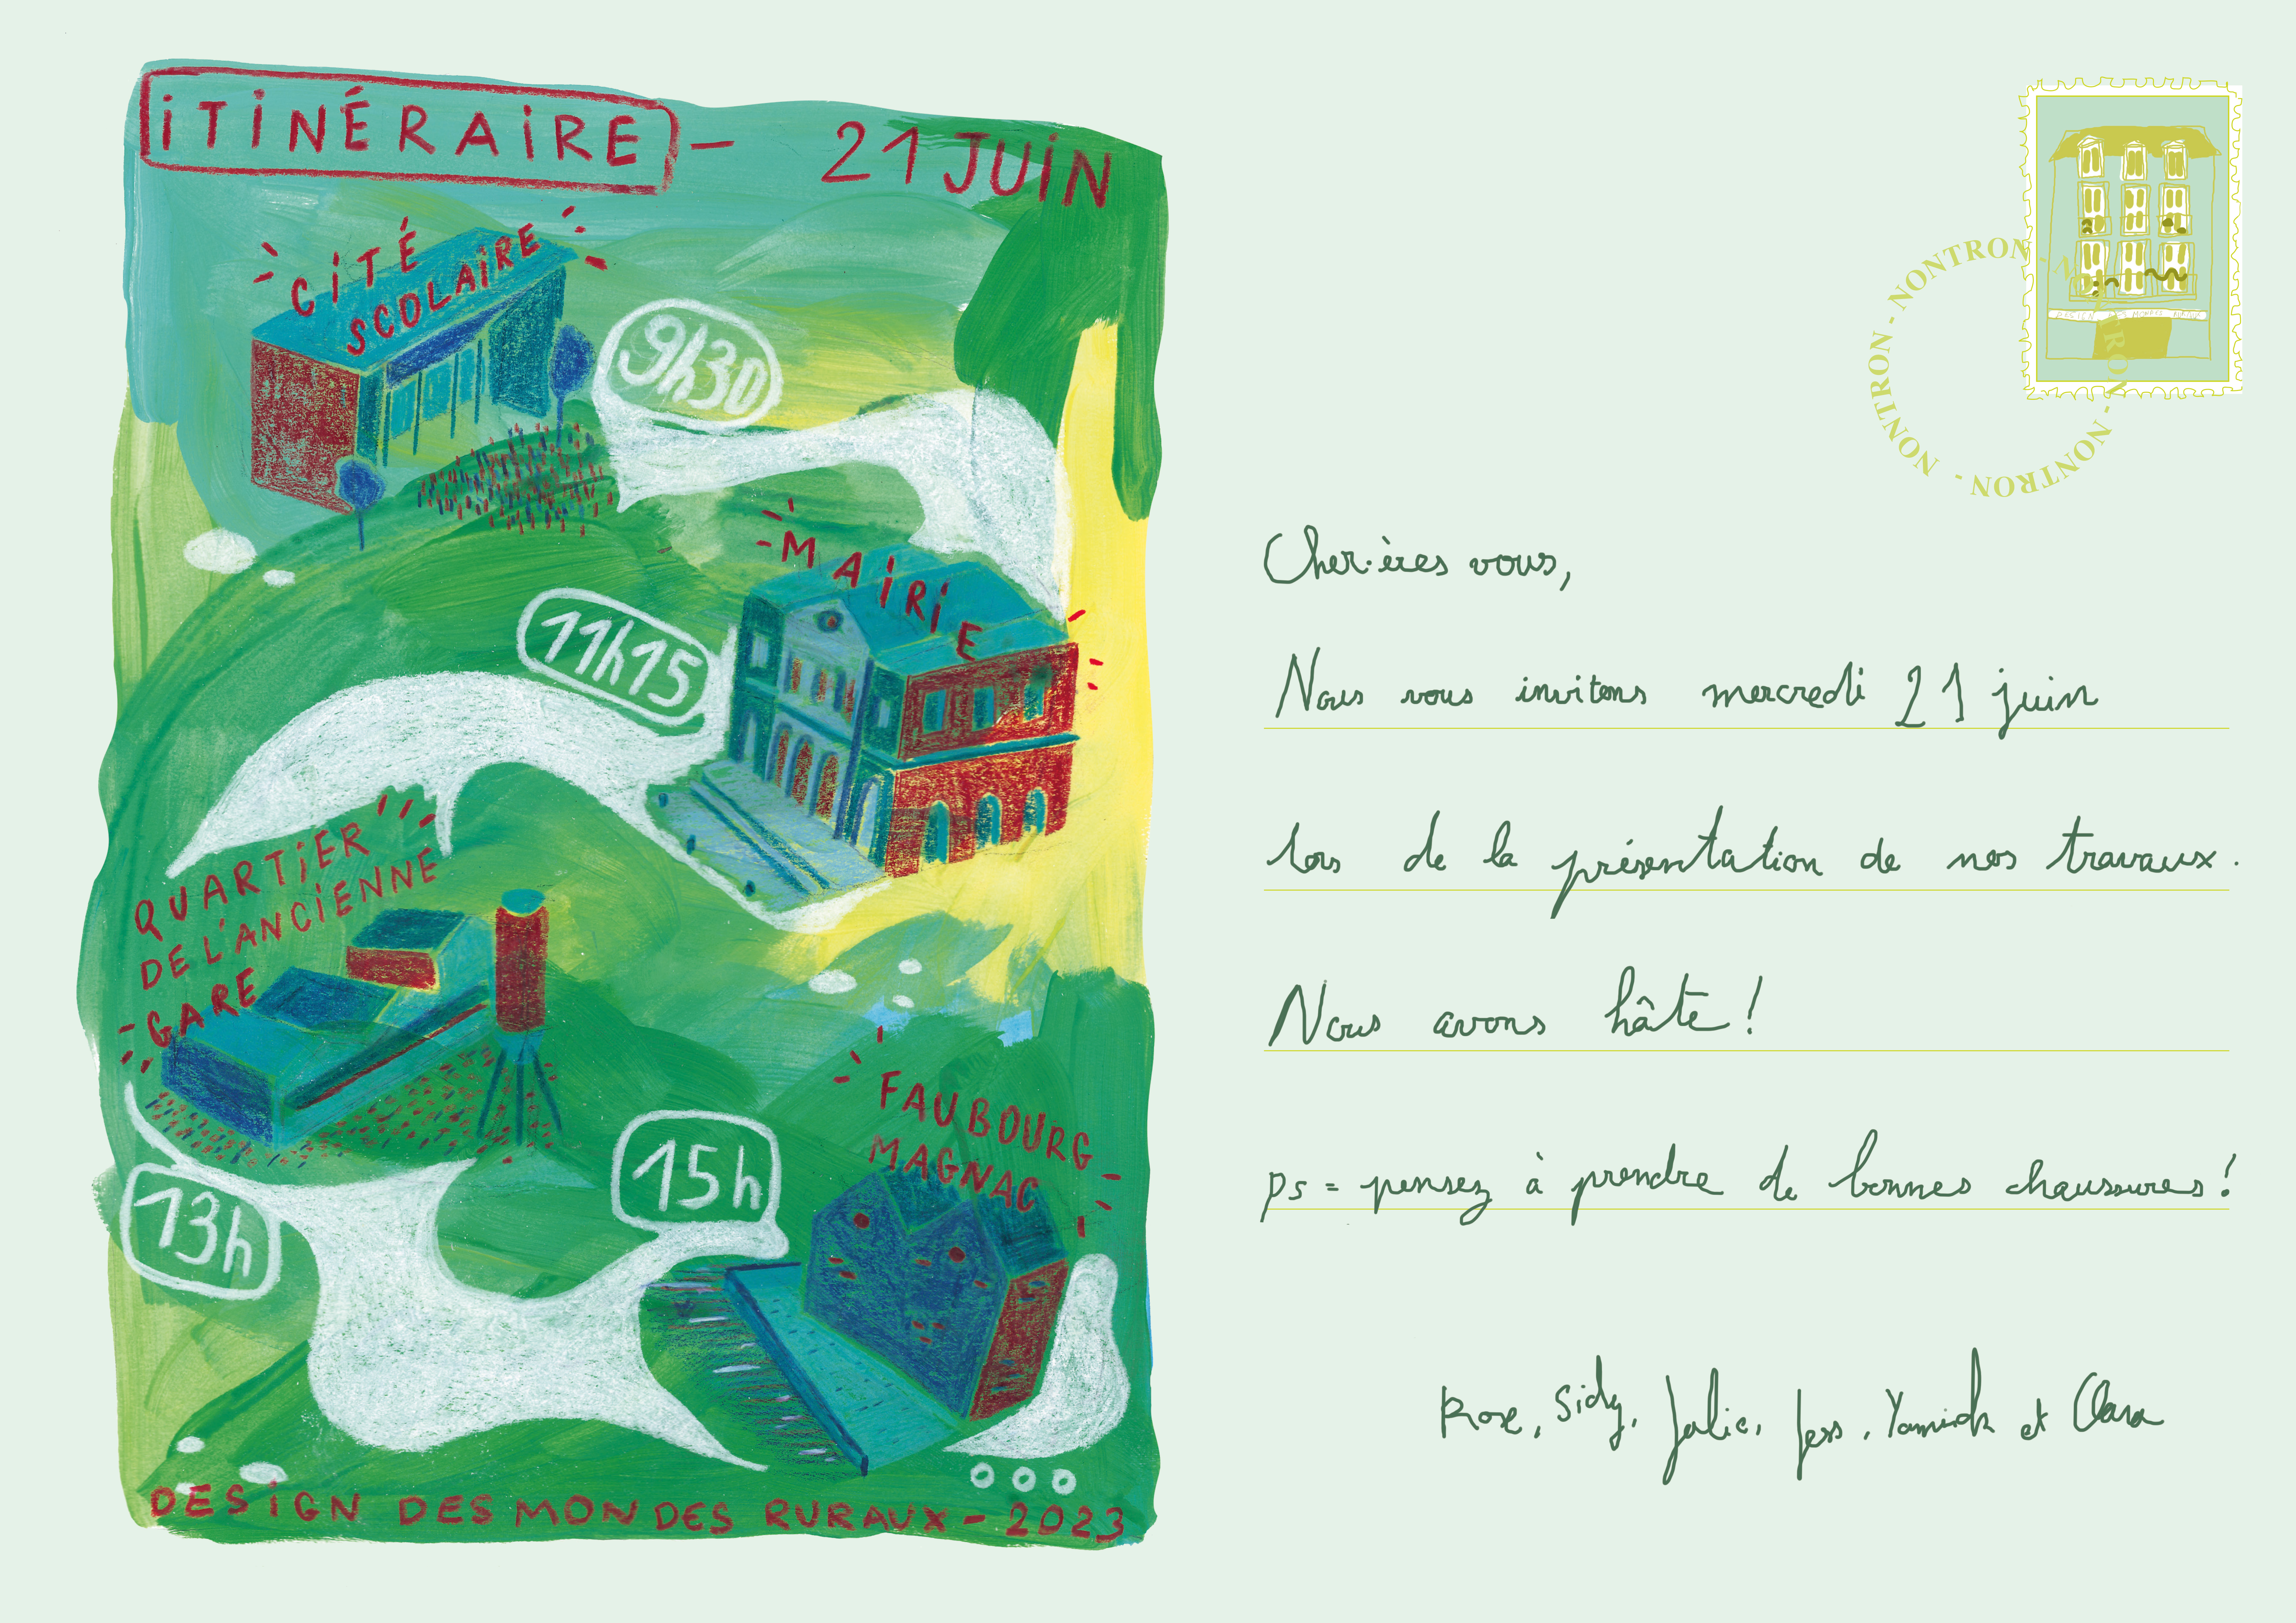 iTiNÉRAiRE - 21 JUiN
CiTÉ
SCOLAiRE
9h30
MAiRiE
11h15
QUARTiER
DE L'ANCiENNE
GARE
13h
15h
FAUBOURG
MAGNAC
DESiGN DES MONDES RURAUX - 2023
NONTRON - NONTRON - NONTRON - NONTRON - NONTRON -
DESIGN DES MONDES RURAUX
Cher·ères vous,
Nous vous invitons mercredi 21 juin
lors de la présentation de nos travaux.
Nous avons hâte !
ps = pensez à prendre de bonnes chaussures !
Rose, Sidy, Julie, Jess, Yannick et Clara